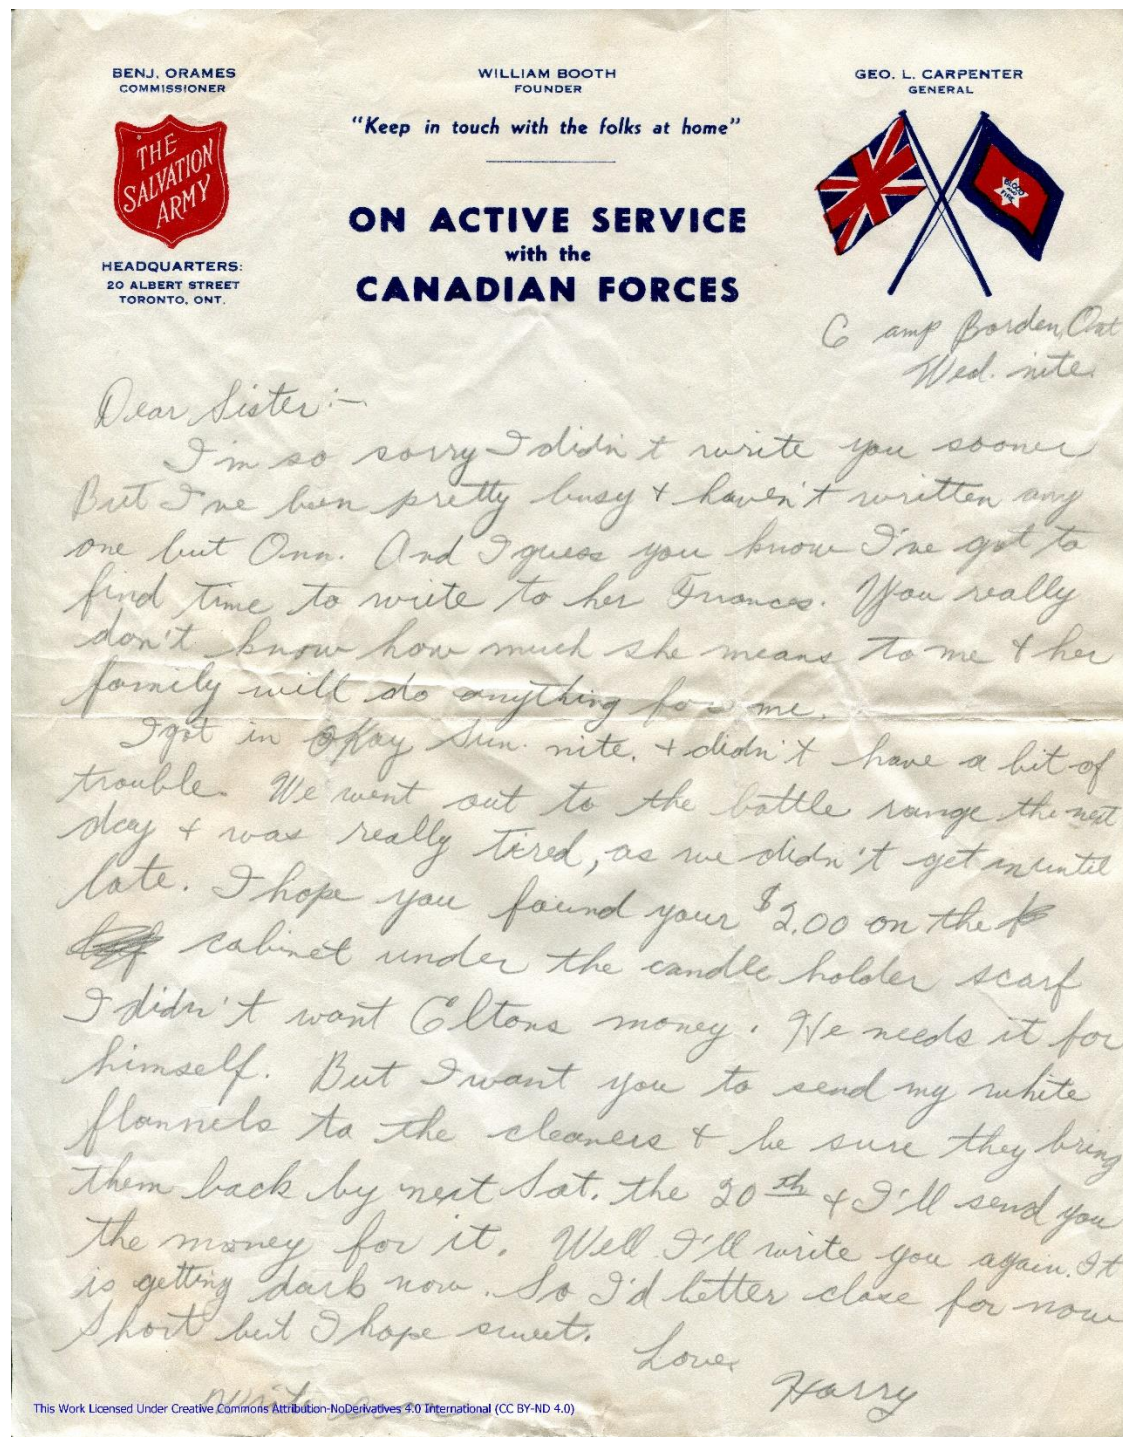 BENJ. ORAMES
COMMISSIONER
THE
SALVATION
ARMY
HEADQUARTERS:
20 ALBERT STREET
TORONTO, ONT.
WILLIAM BOOTH
FOUNDER
"Keep in touch with the folks at home"
ON ACTIVE SERVICE
with the
CANADIAN FORCES
GEO. L. CARPENTER
GENERAL
BLOOD
AND
FIRE
Camp Borden, Ont
Wed. nite.
Dear Sister:—
I'm so sorry I didn't write you sooner
But I've been pretty busy & haven't written any
one but Ann. And I guess you know I've got to
find time to write to her Frances. You really
don't know how much she means to me & her
family will do anything for me.
I got in okay Sun. nite. & didn't have a bit of
trouble. We went out to the battle range the next
day & was really tired, as we didn't get in until
late. I hope you found your $2.00 on the
cabinet under the candle holder scarf
I didn't want Eltons money. He needs it for
himself. But I want you to send my white
flannels to the cleaners & be sure they bring
them back by next Sat. the 20th & I'll send you
the money for it. Well I'll write you again. It
is getting dark now. So I'd better close for now
Short but I hope sweet.
Love
Harry
Write
This Work Licensed Under Creative Commons Attribution-NoDerivatives 4.0 International (CC BY-ND 4.0)